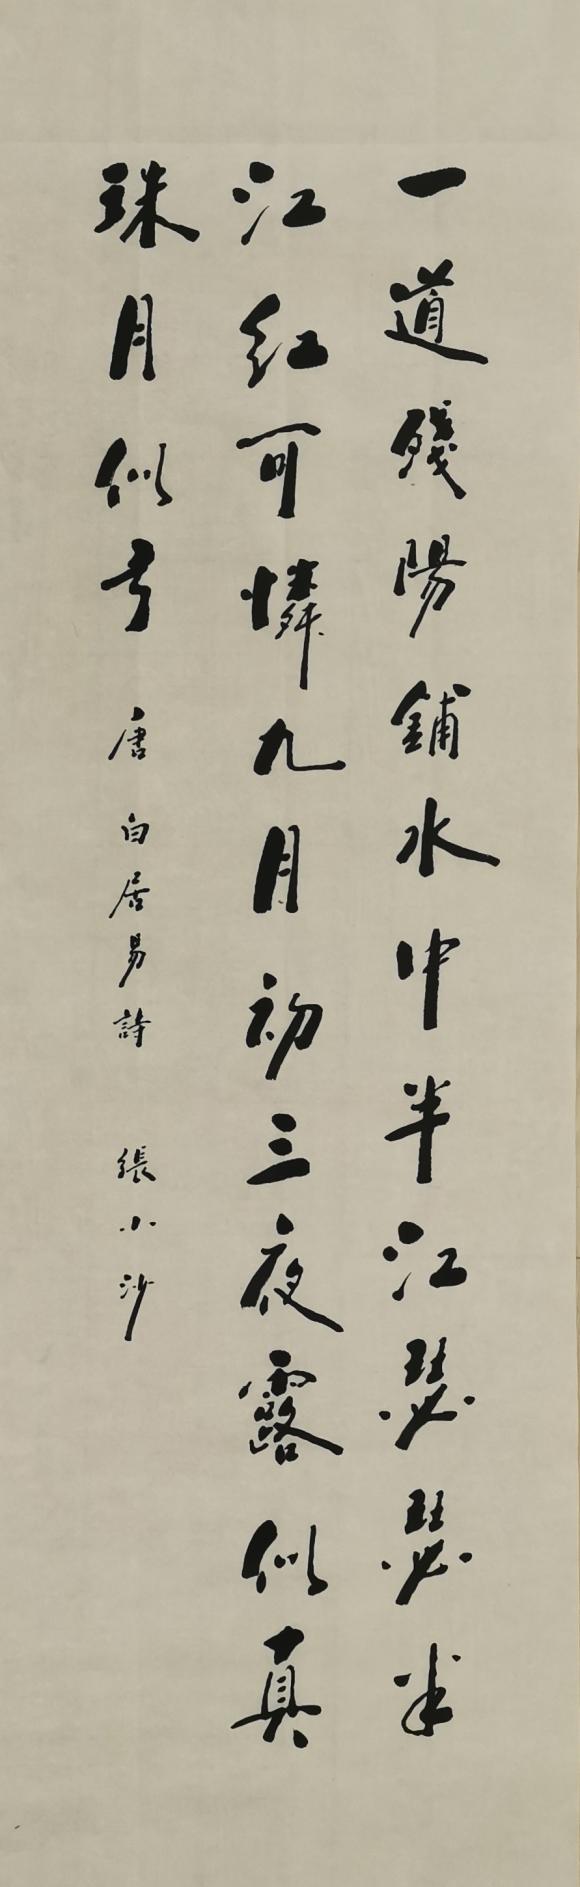 一道殘陽鋪水中半江瑟瑟半
江紅可憐九月初三夜露似真
珠月似弓 唐 白居易詩 張小沙